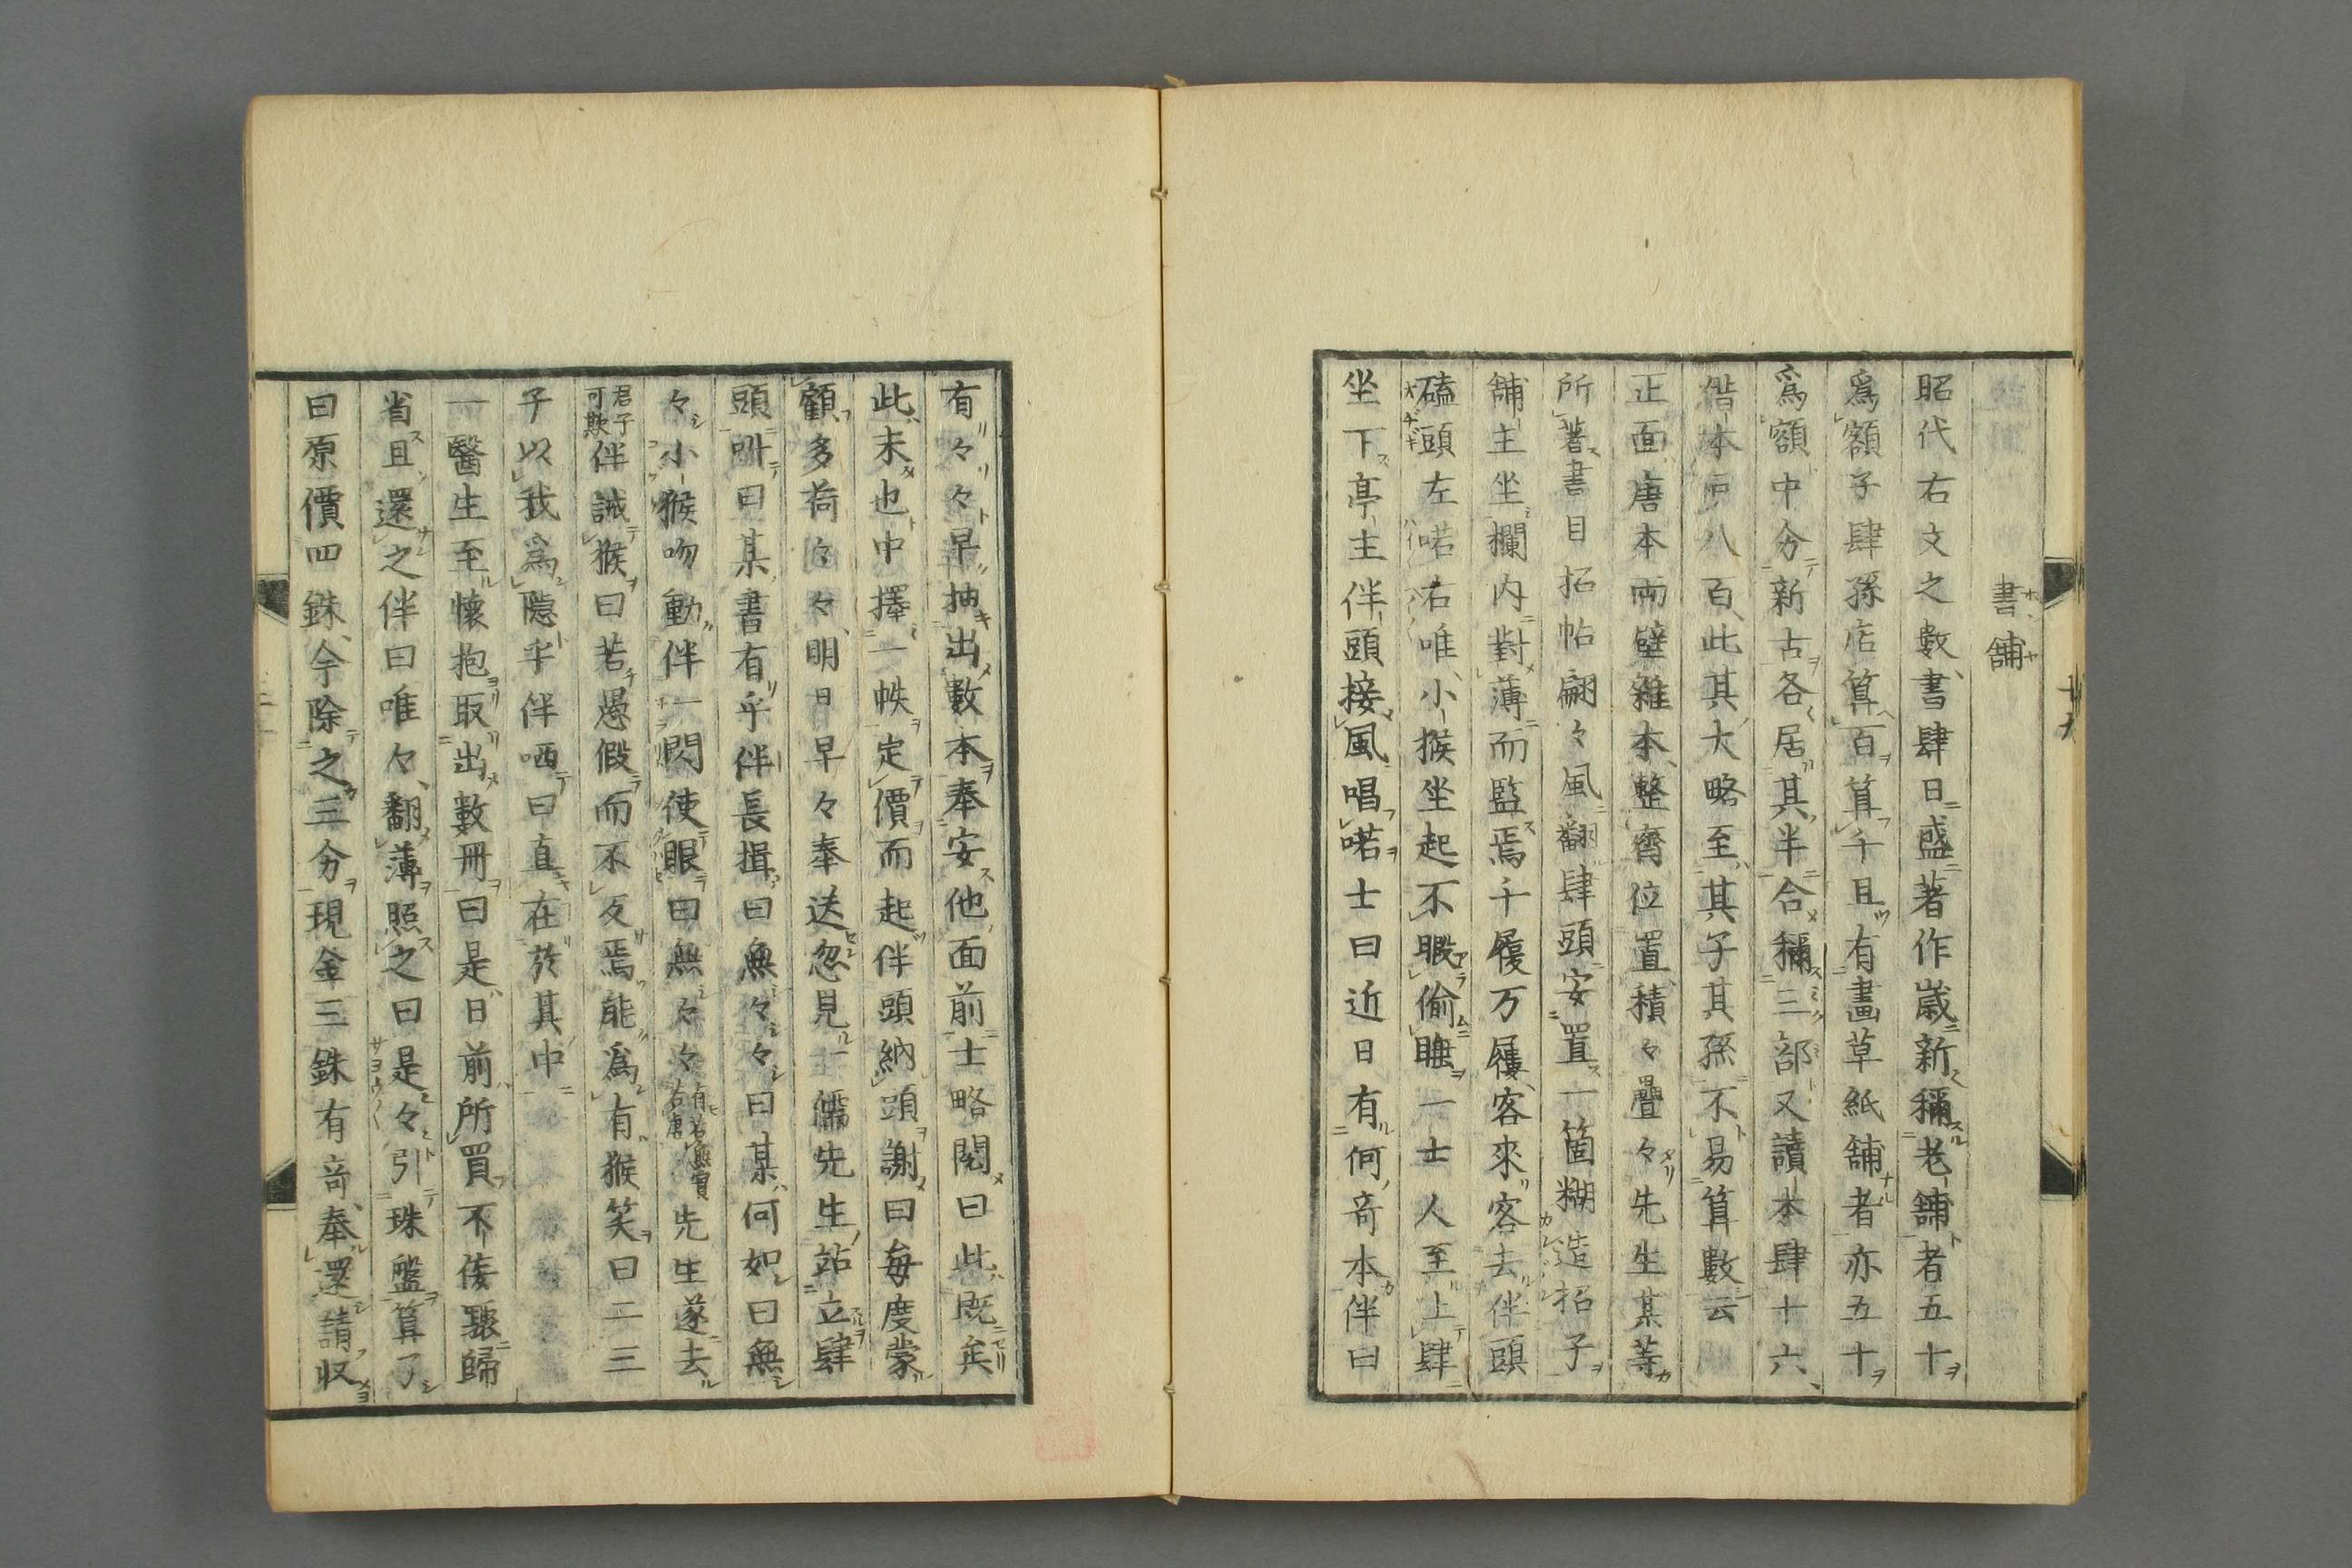 書舗
昭代右文之數、書肆日盛、著作歳新、稱老舗者五十
爲額、子肆孫店算百算千、且有畫草紙舗者、亦五十
爲額、中分新古各居其半、合稱三部、又讀本肆十六、
借本戸八百、此其大略、至其子其孫、不易算數云
正面唐本、兩壁雜本、整齊位置、積々疊々、先生某等
所著書目、招帖翩々風翻、肆頭安置一箇糊造招子
舗主坐欄内對薄而監焉、千履万屨、客來客去、伴頭
磕頭、左喏右唯、小猴坐起不暇偷睡、一士人至上肆
坐下、亭主伴頭接風唱喏、士曰近日有何奇本、伴曰
有々々早抽出數本、奉安他面前、士略閲曰此既矣
此未也、中擇一帙、定價而起、伴頭納頭謝曰毎度蒙
顧、多荷々々、明日早々奉送、忽見一儒先生站立肆
頭、叫曰某書有乎、伴長揖曰無々々、曰某何如、曰無
々、小猴吻動、伴一閃使眼曰無々々、有若無實若虚先生遂去
君子可欺伴誡猴曰、若愚假而不反、焉能爲有、猴笑曰二三
子以我爲隱乎、伴哂曰直在於其中
一醫生至、懷抱取出數冊曰、是日前所買、不佞驟歸
省、且還之、伴曰唯々、翻薄照之曰、是々、引珠盤算了
曰原價四銖、今除之三分、現金三銖有奇、奉還請收